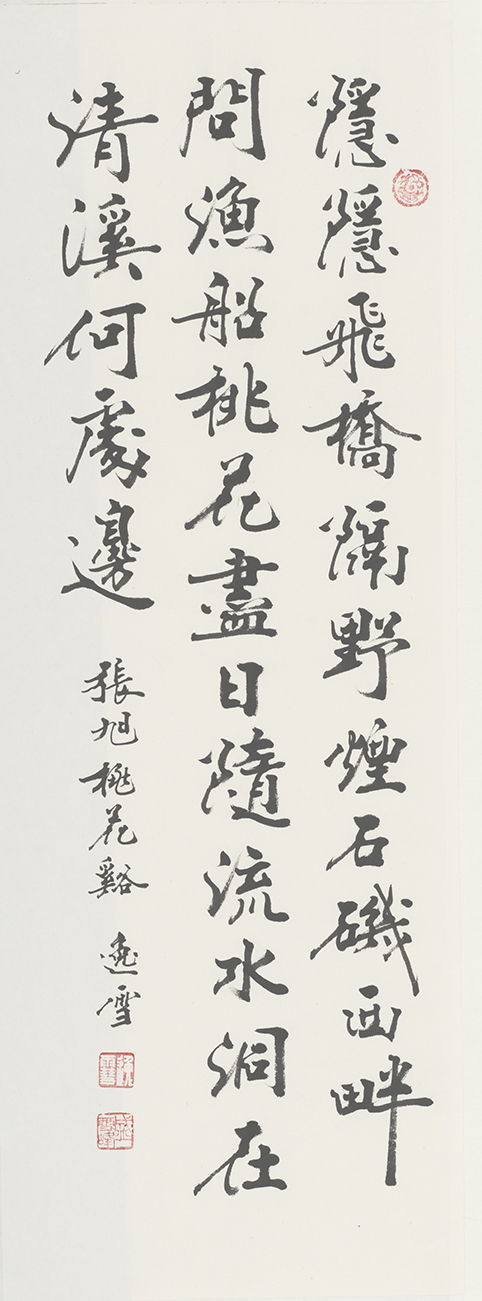 隱隱飛橋隔野煙石磯西畔
問漁船桃花盡日隨流水洞在
清溪何處邊
張旭桃花谿
雪